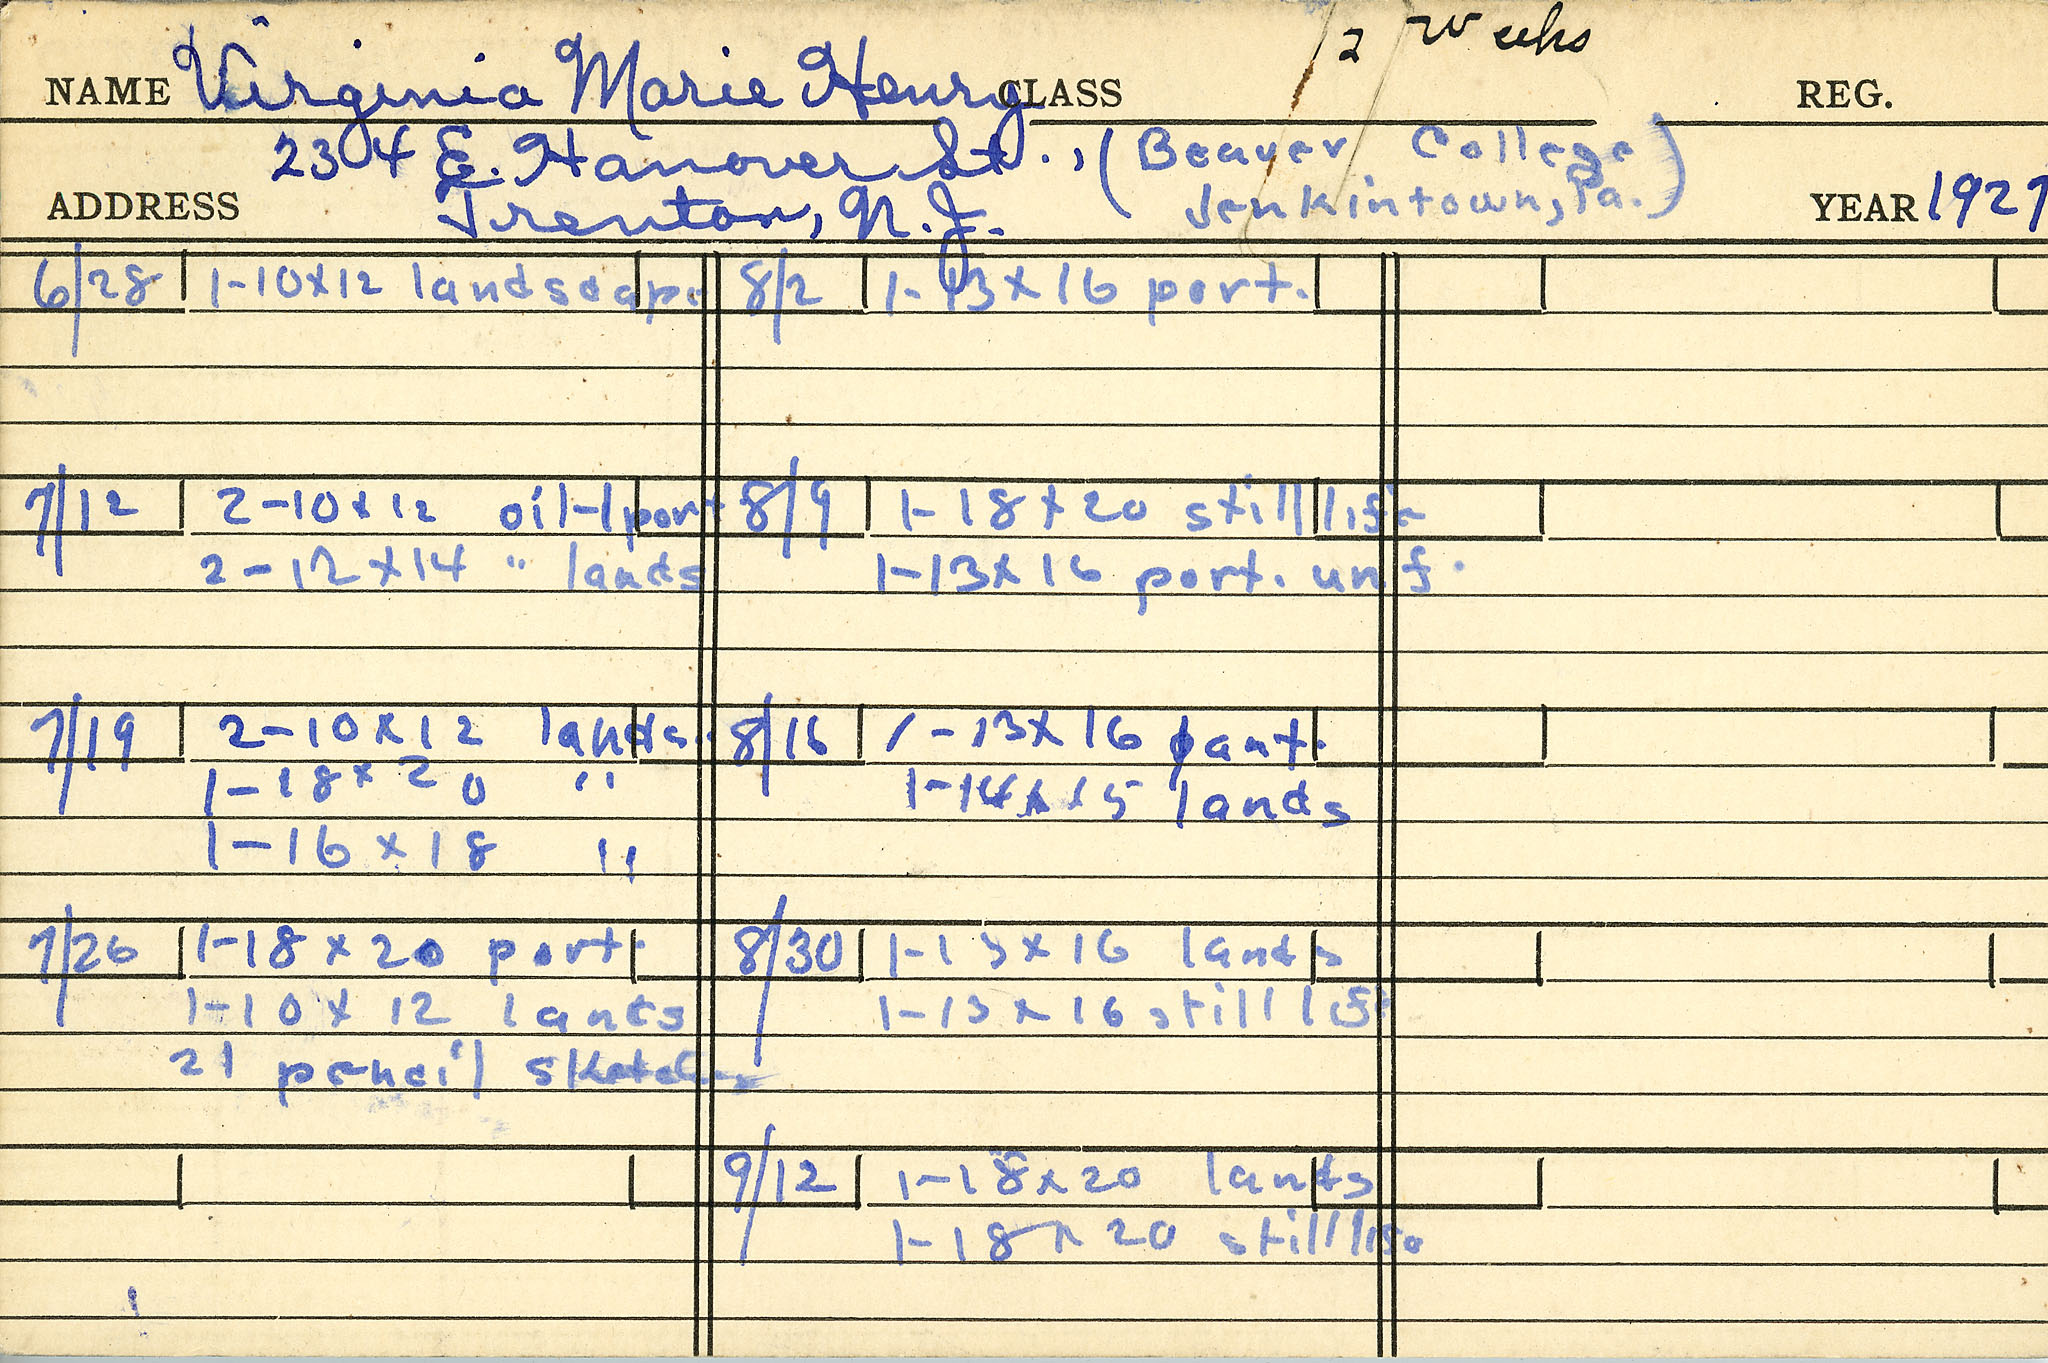 12 Weeks
NAME Virginia Marie Henry CLASS REG.
234 E. Hanover St., (Beaver College
ADDRESS Trenton, N.J. Jenkintown, Pa.) YEAR 1927
6/28 1-10x12 landscap.
7/12 2-10x12 oil-1 port
2-12x14 " lands
7/19 2-10x12 lands.
1-18x20 "
1-16x18 "
7/26 1-18x20 port.
1-10x12 lands
21 pencil sketches
8/2 1-13x16 port.
8/9 1-18x20 still life
1-13x16 port. unf.
8/16 1-13x16 port.
1-14x15 lands
8/30 1-13x16 lands
1-13x16 still life
9/12 1-18x20 lands
1-18x20 still life